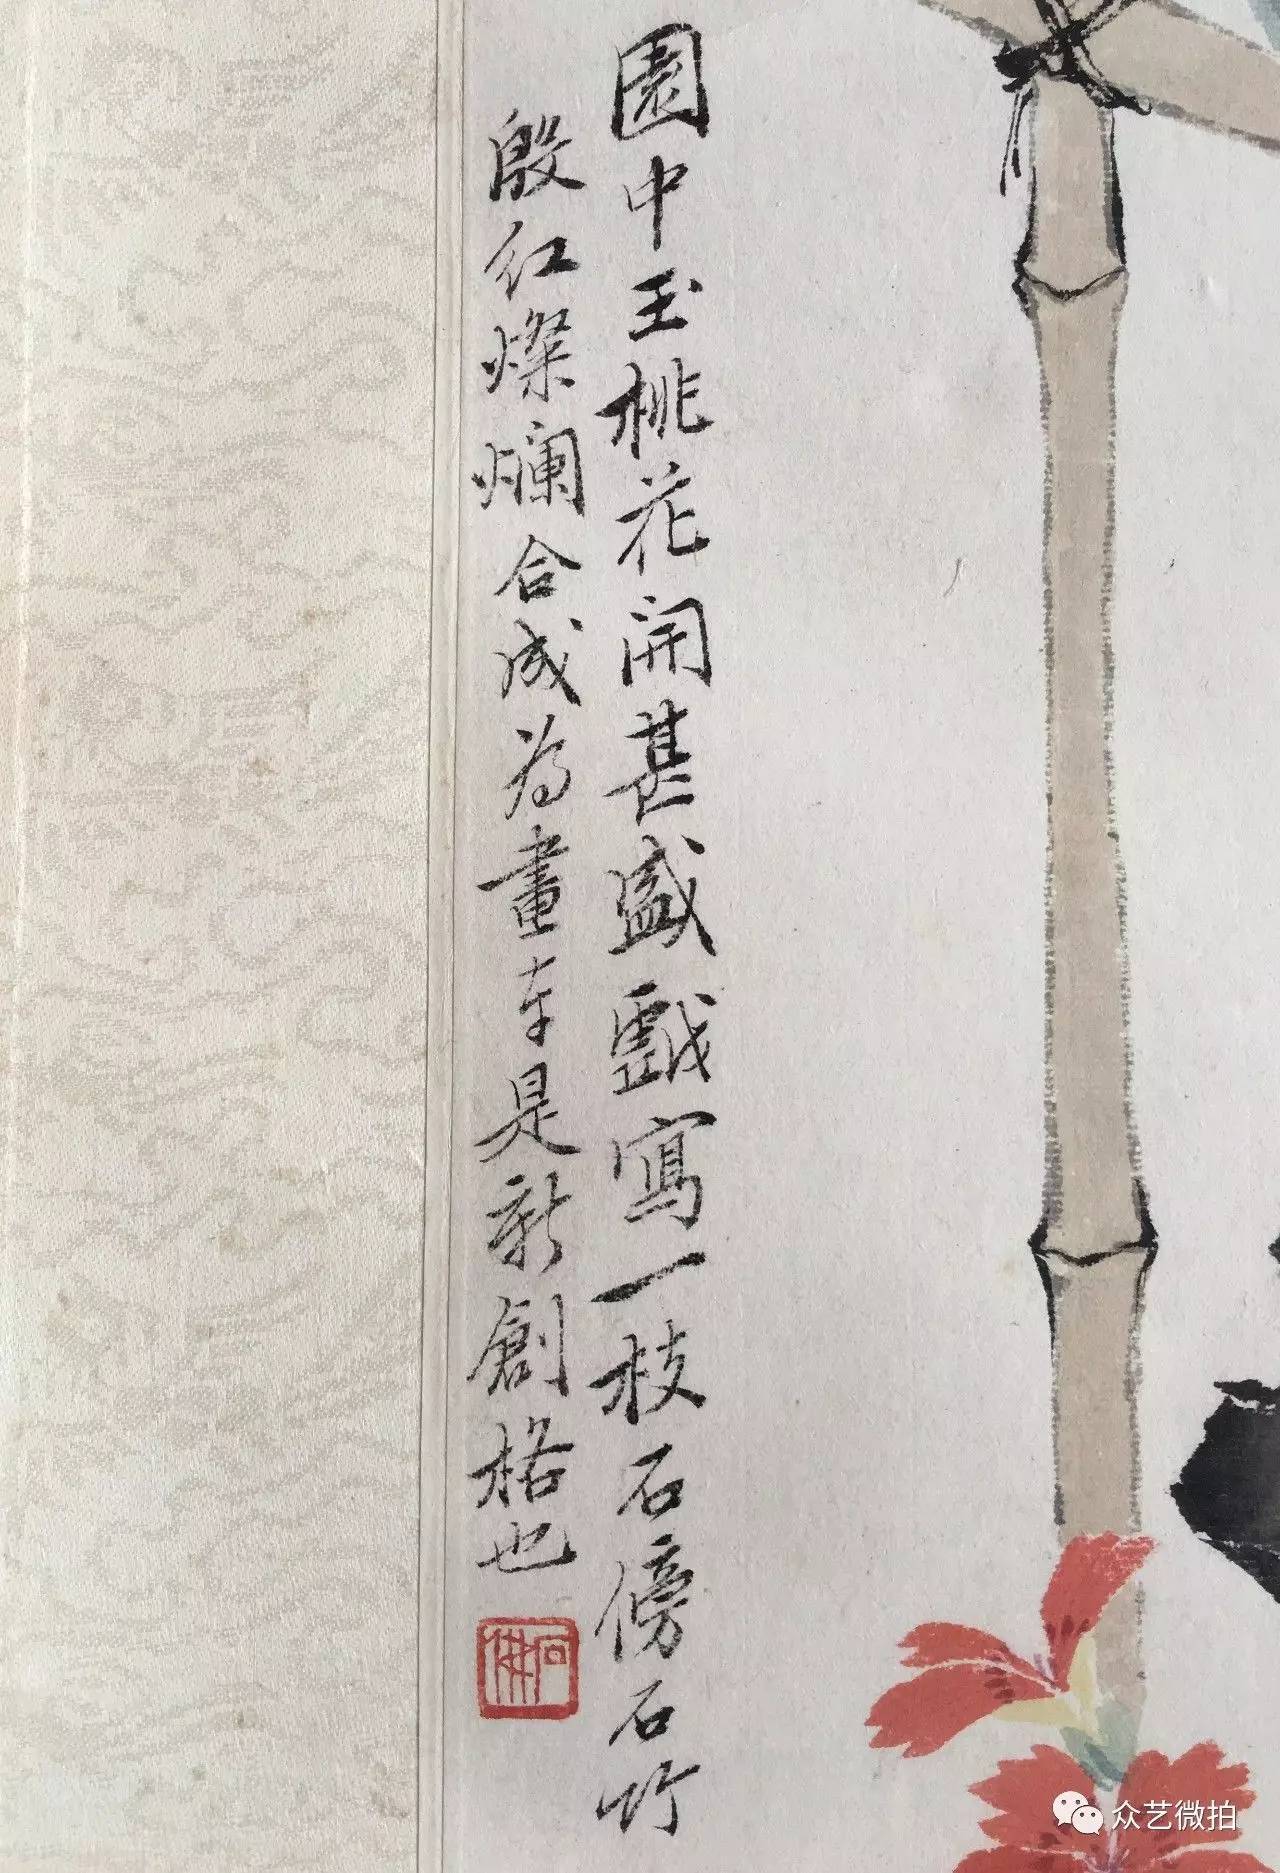 園中玉桃花開甚盛戲寫一枝石傍石竹
殷紅燦爛合成為畫本是新創格也
石佛
众艺微拍